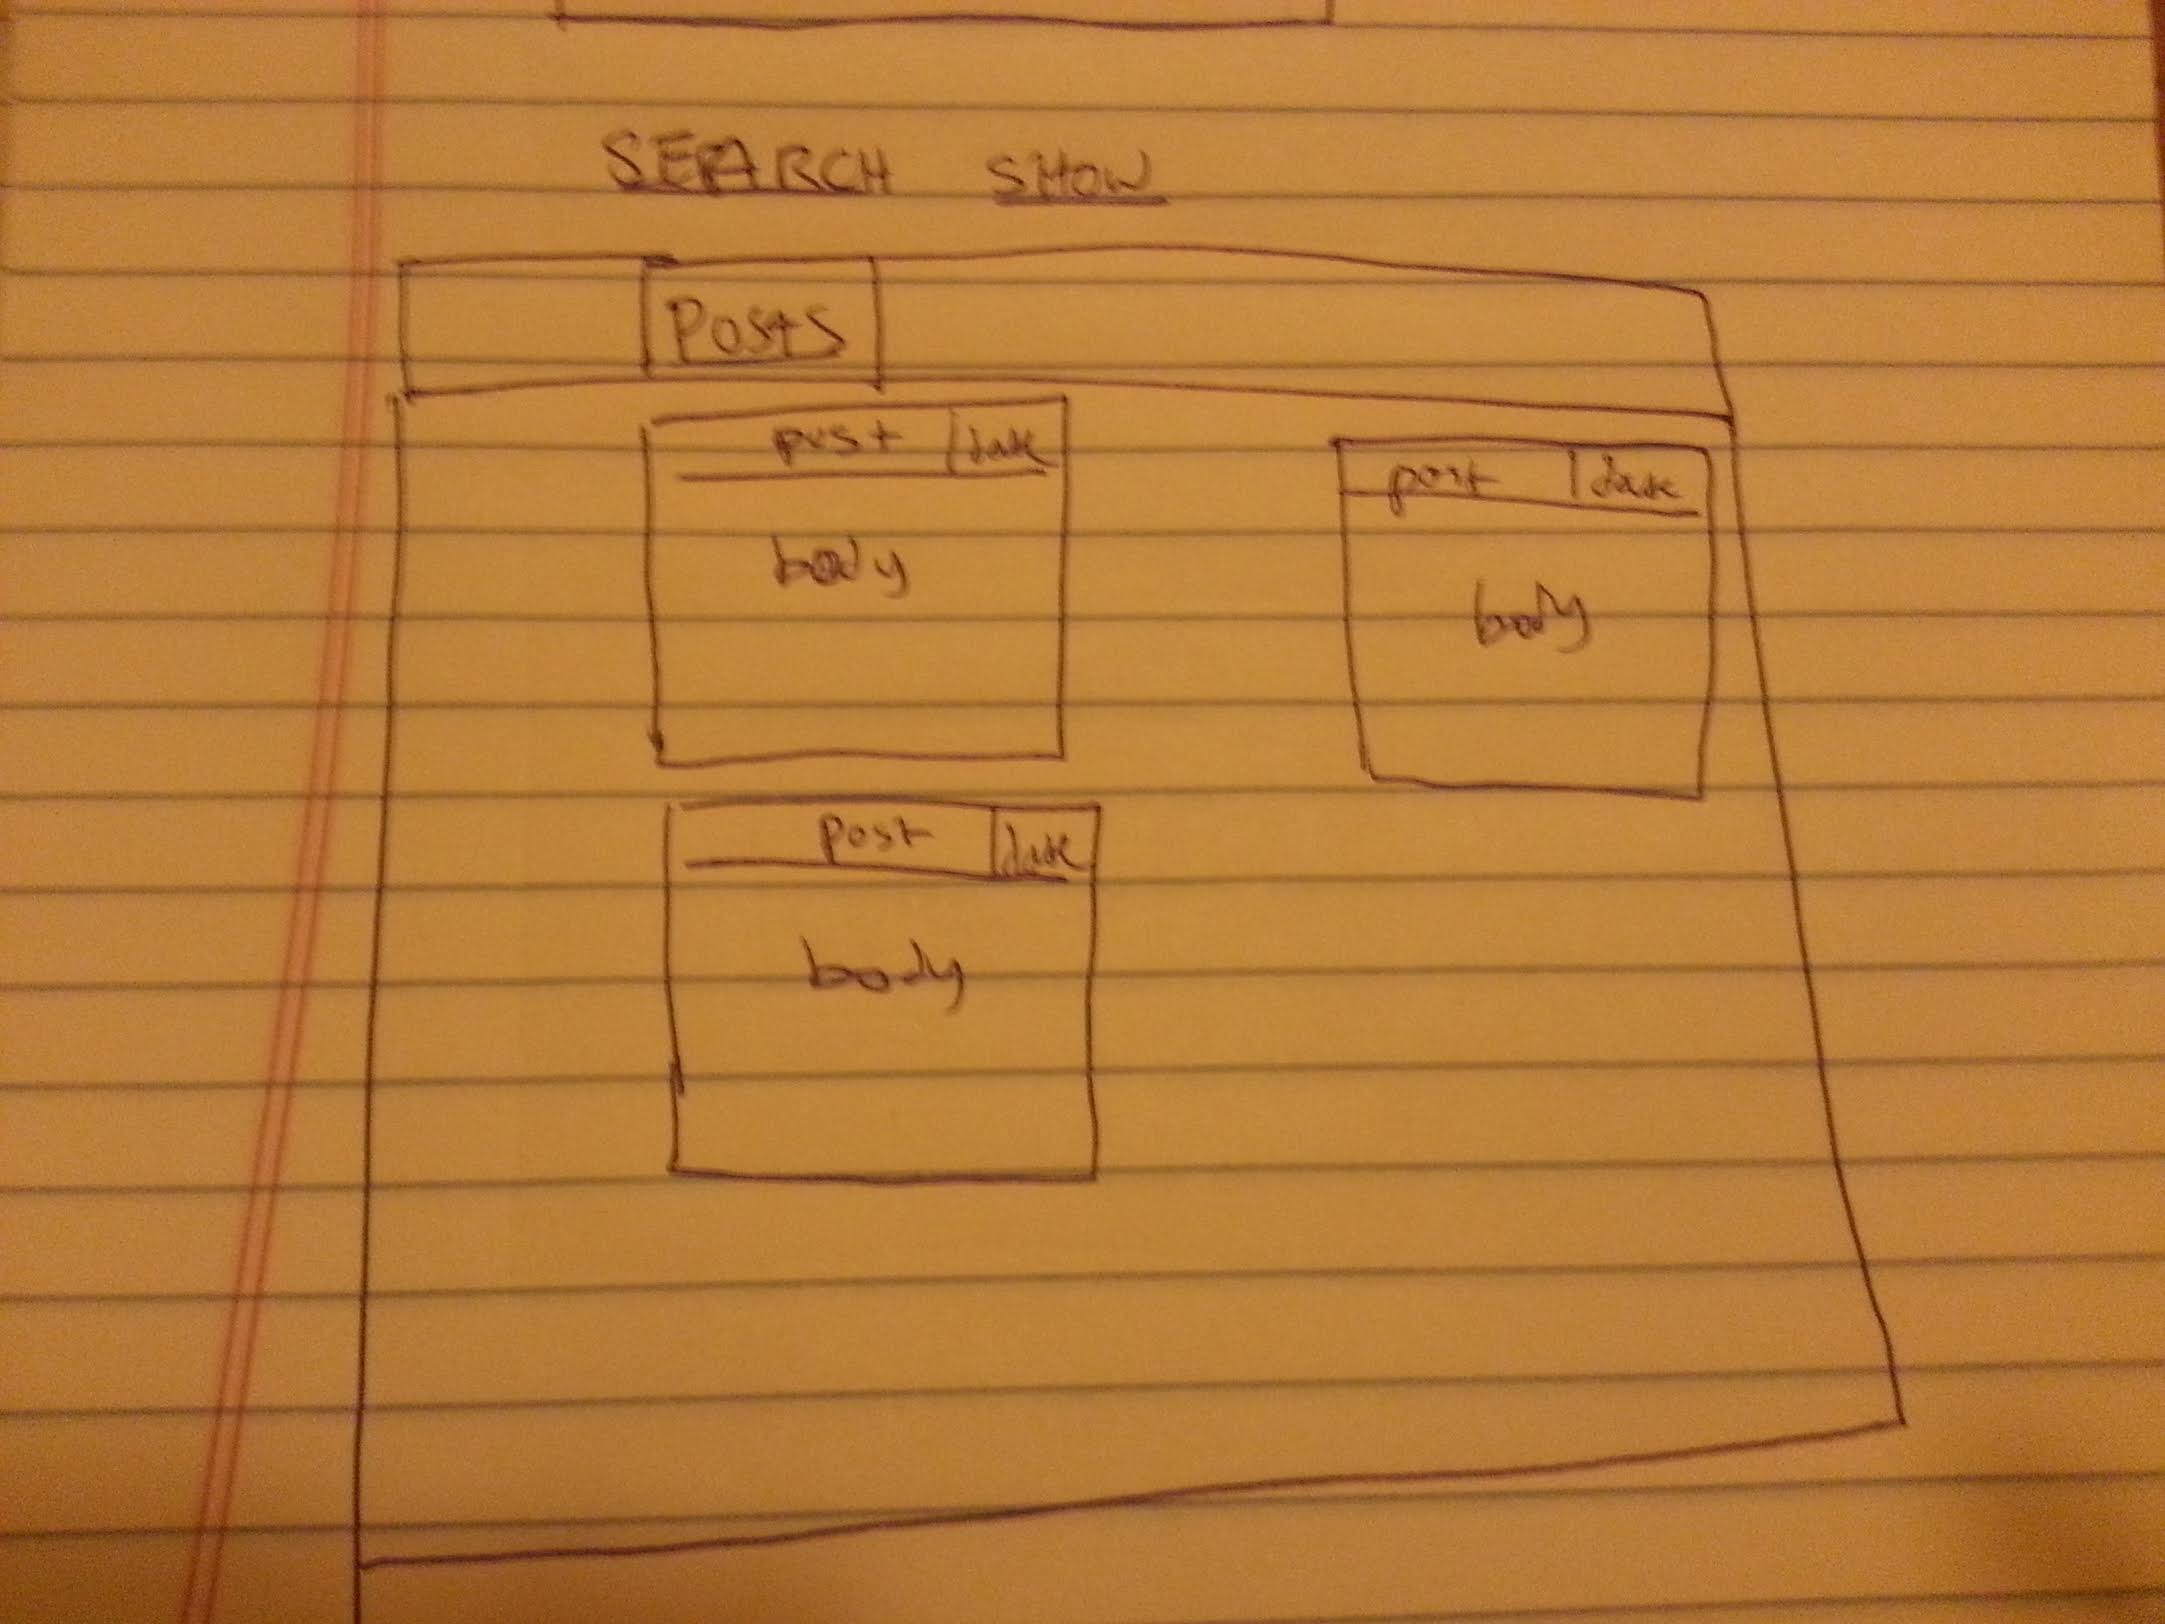 SEARCH SHOW
Posts
post date
body
post date
body
post date
body